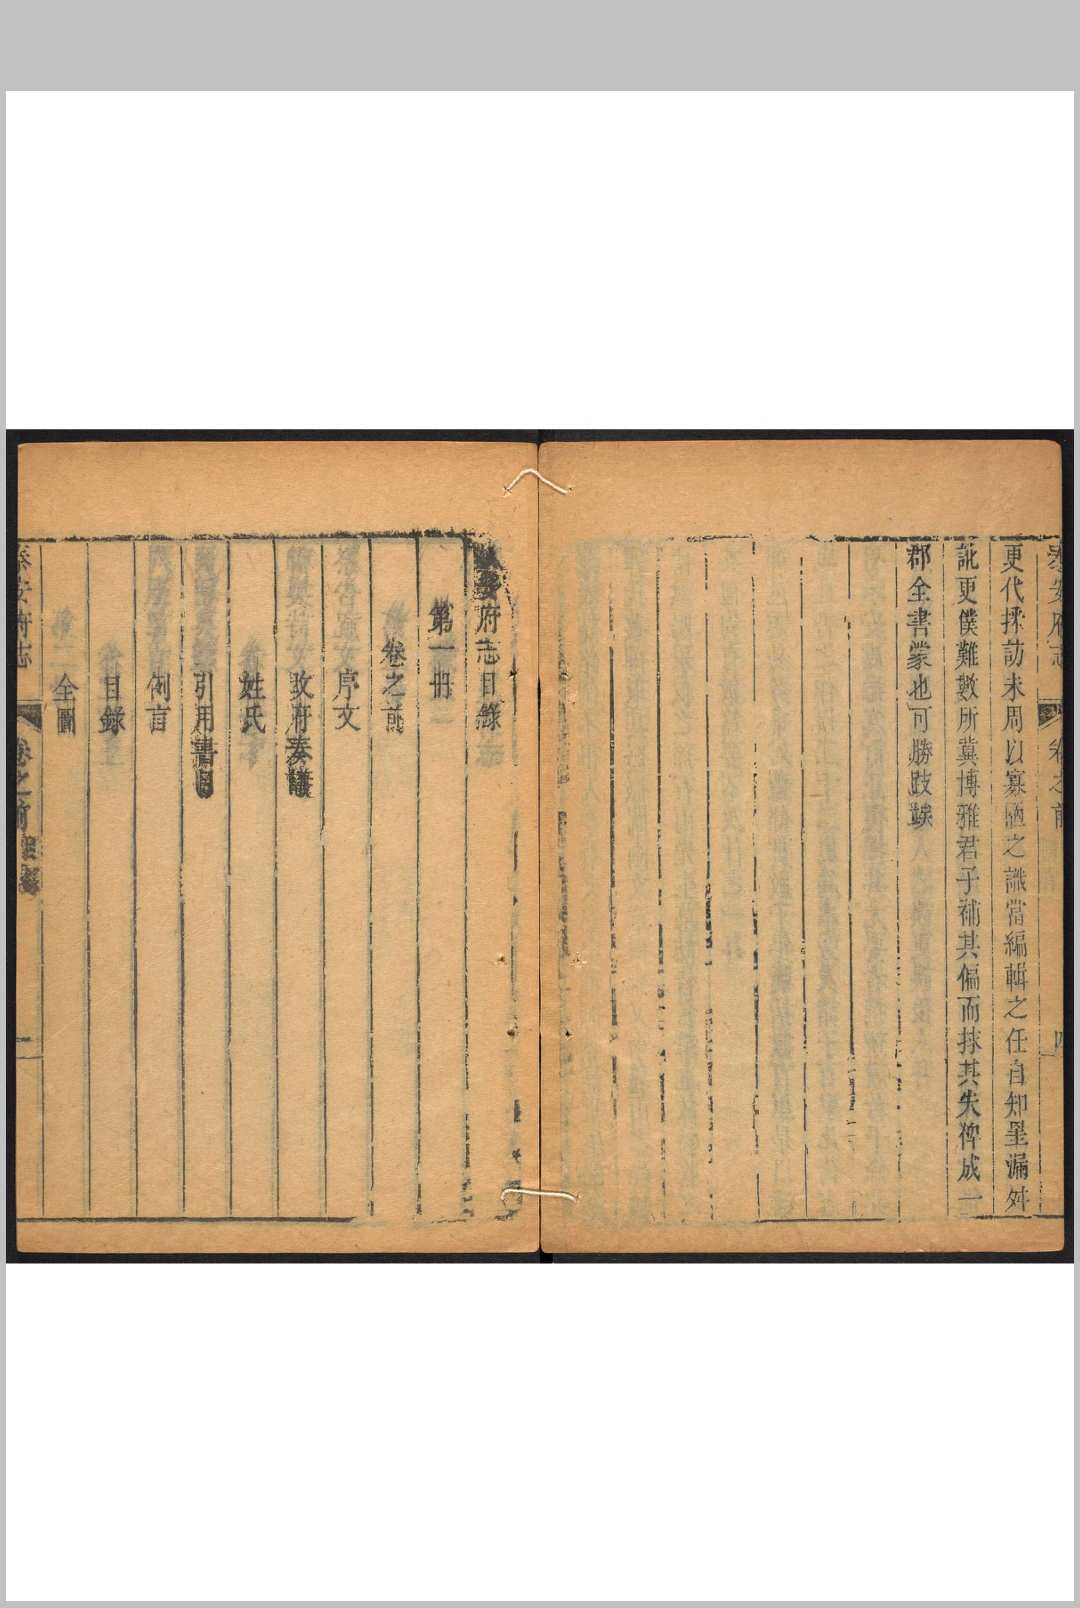 泰安府志
卷之前
四
更代採訪未周以寡陋之識當編輯之任自知罣漏舛
訛更僕難數所冀博雅君子補其偏而捄其失裨成一
郡全書蒙也可勝跂竢
泰安府志目錄
第一冊
卷之前
序文
政府奏議
姓氏
引用書目
例言
目錄
全圖
泰安府志
卷之前
一